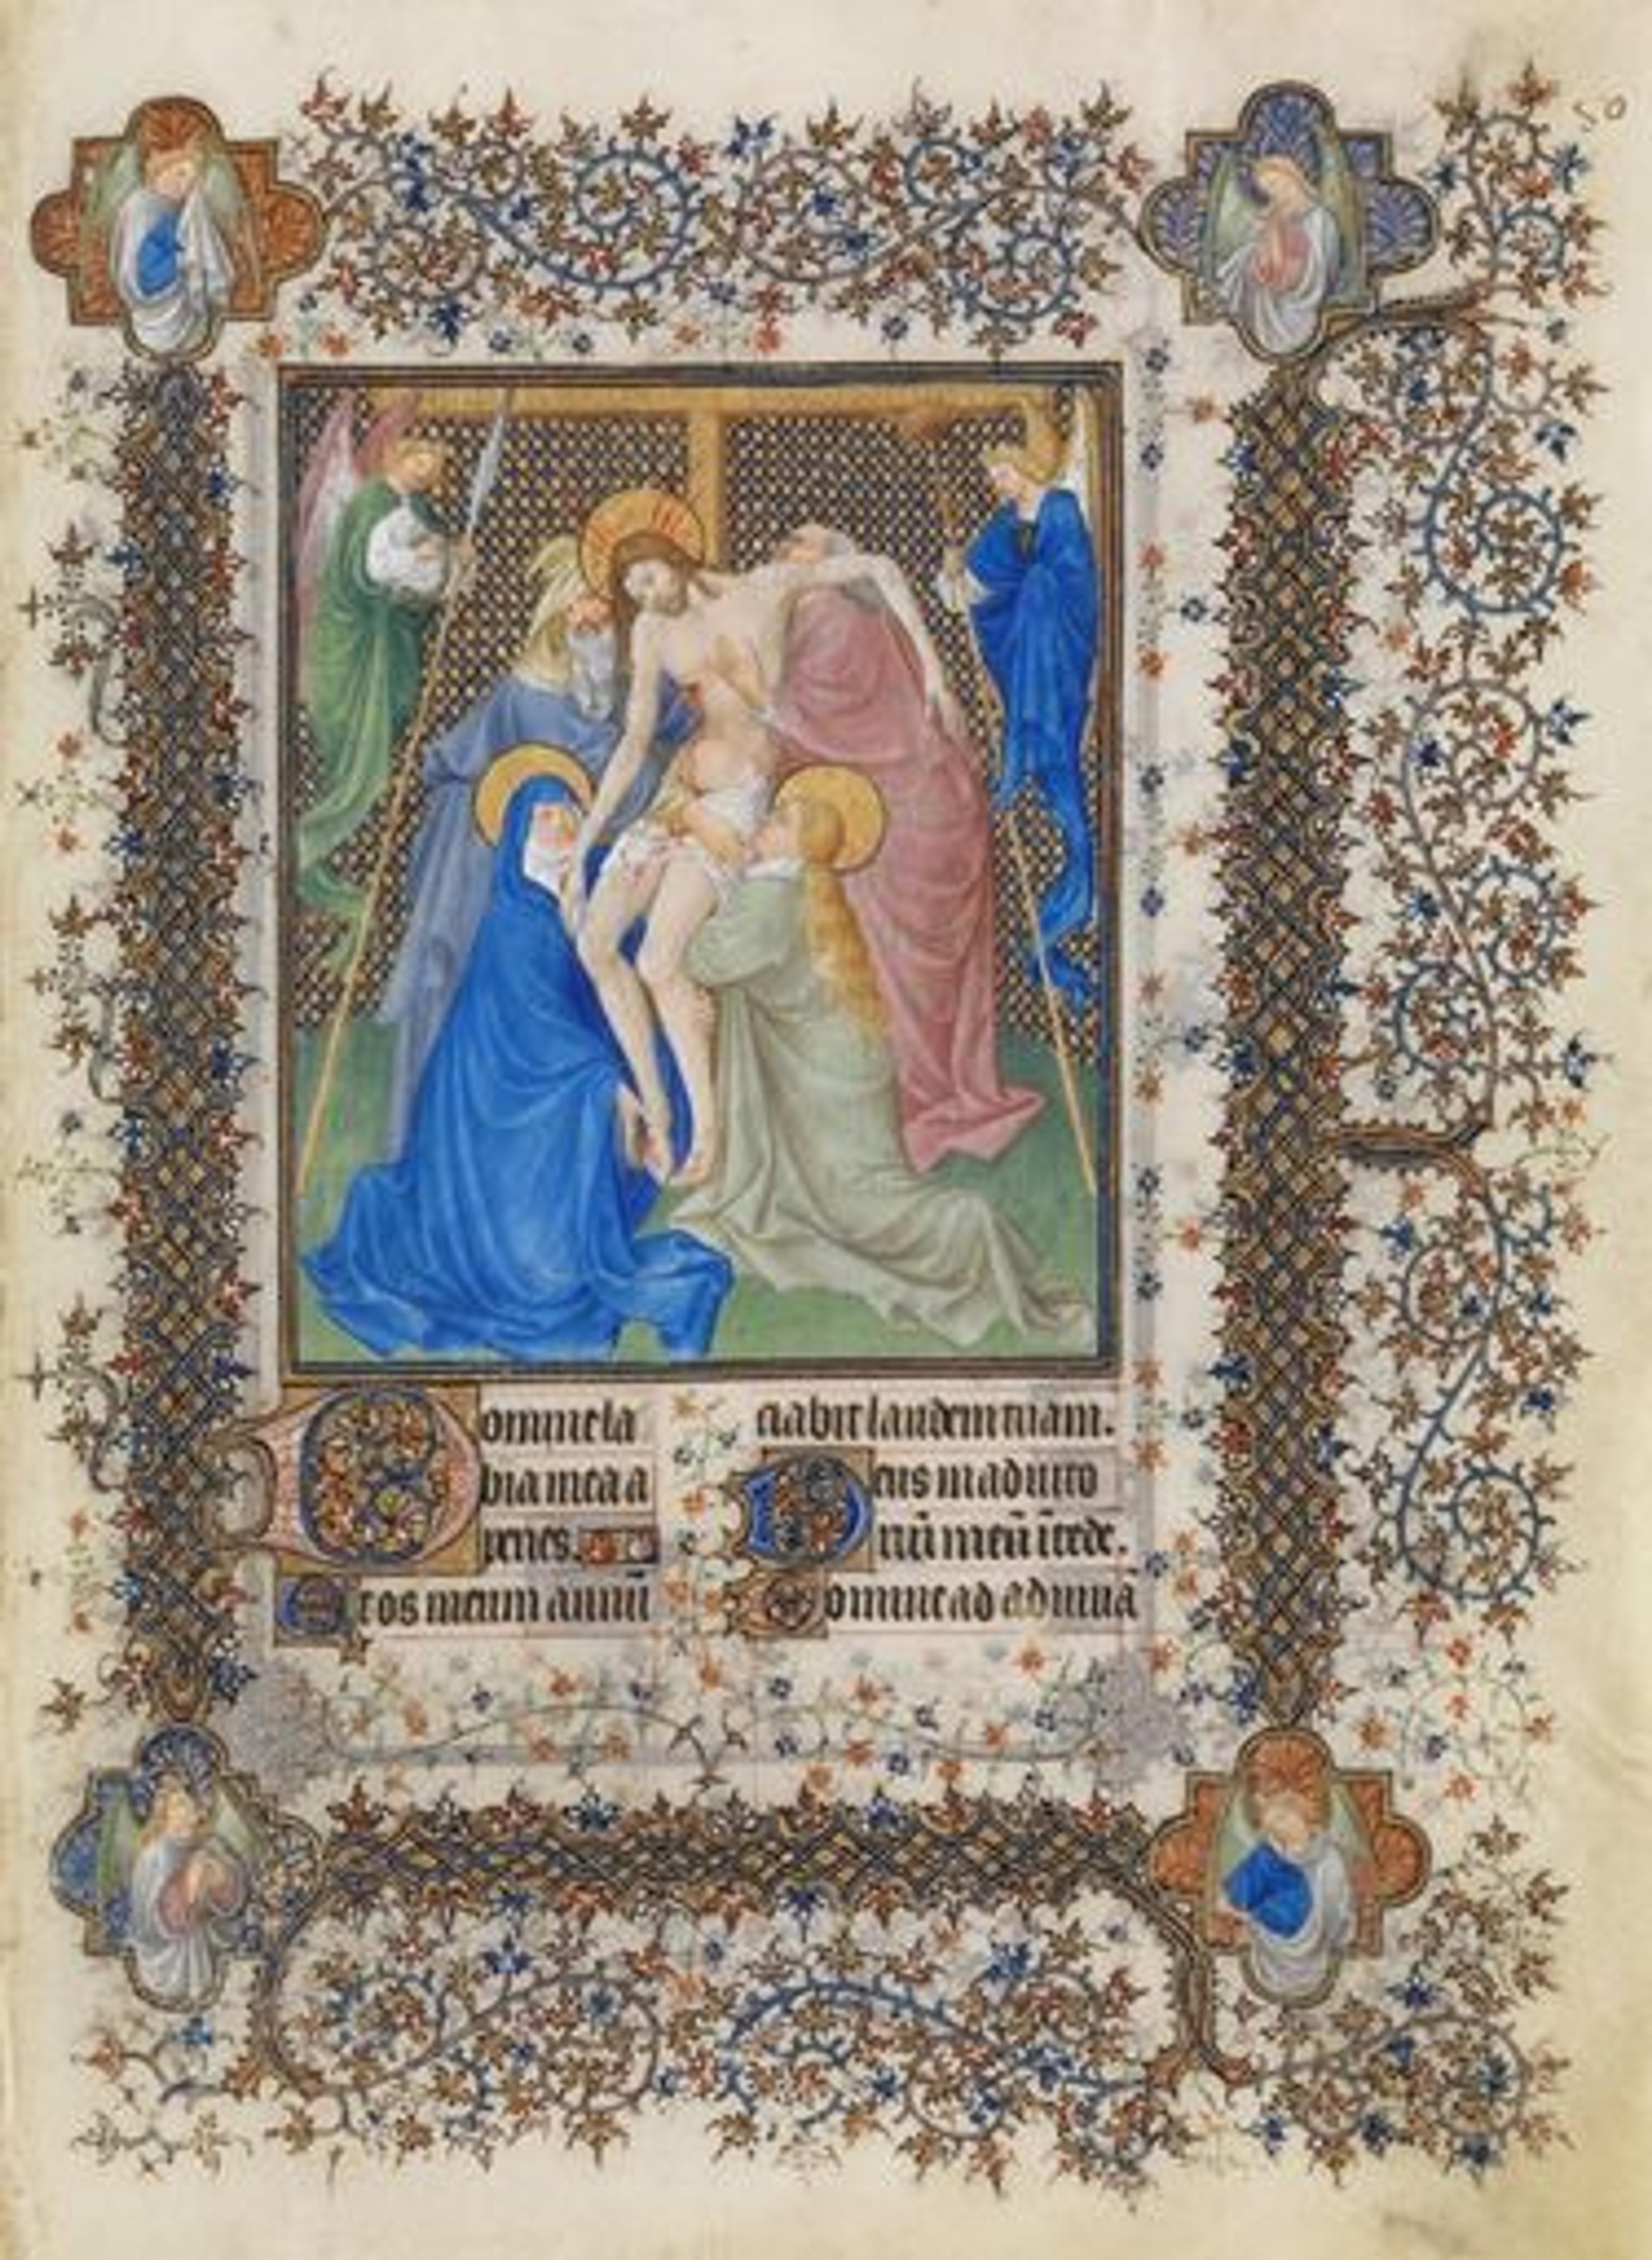 Domine la
bia mea a
peries.
Et os meum annū
ciabit laudem tuam.
Deus in adiuto
riū meū ītede.
Domine ad adiuuā
50